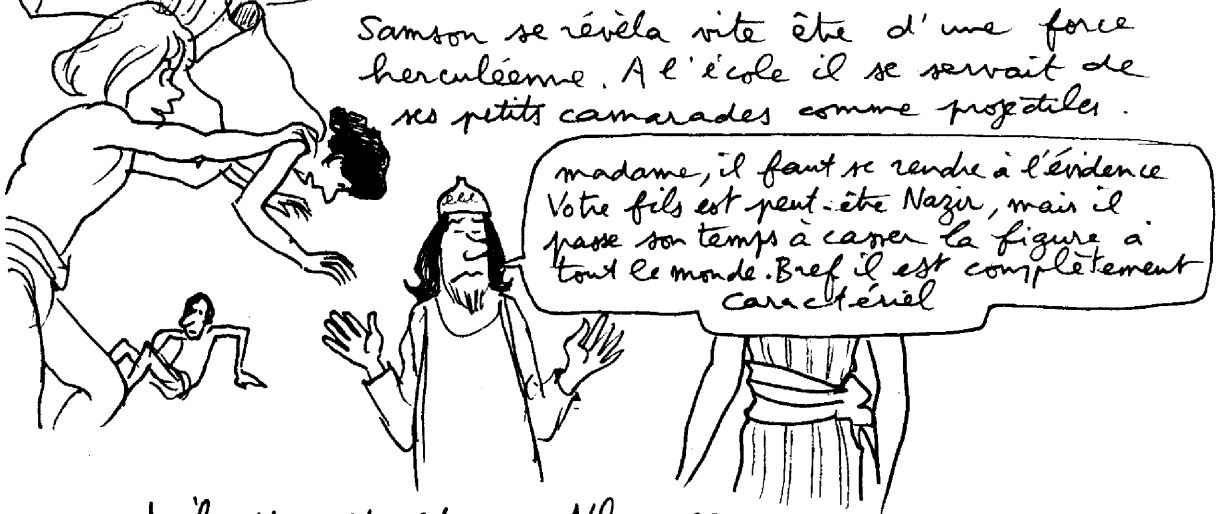 Samson se révèla vite être d'une force
herculéenne. A l'école il se servait de
ses petits camarades comme projectiles.
madame, il faut se rendre à l'évidence
Votre fils est peut-être Nazir, mais il
passe son temps à casser la figure à
tout le monde. Bref il est complètement
caractériel